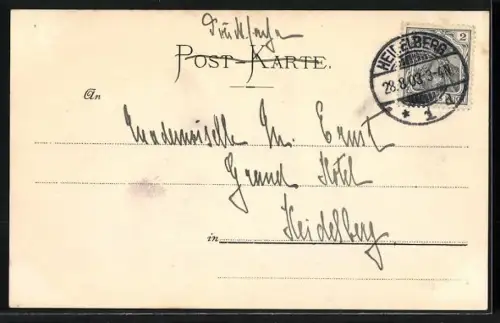 Drucksache
POST-KARTE.
2
HEIDELBERG
28.8.03.3-4N.
* 1 A
An
Mademoiselle M. Ernst
Grand Hotel
in Heidelberg